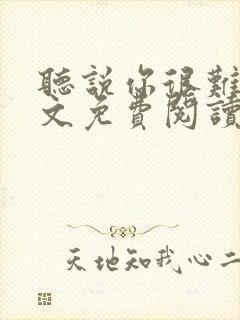 聽說你很難
文免費閱讀
天地知我心二